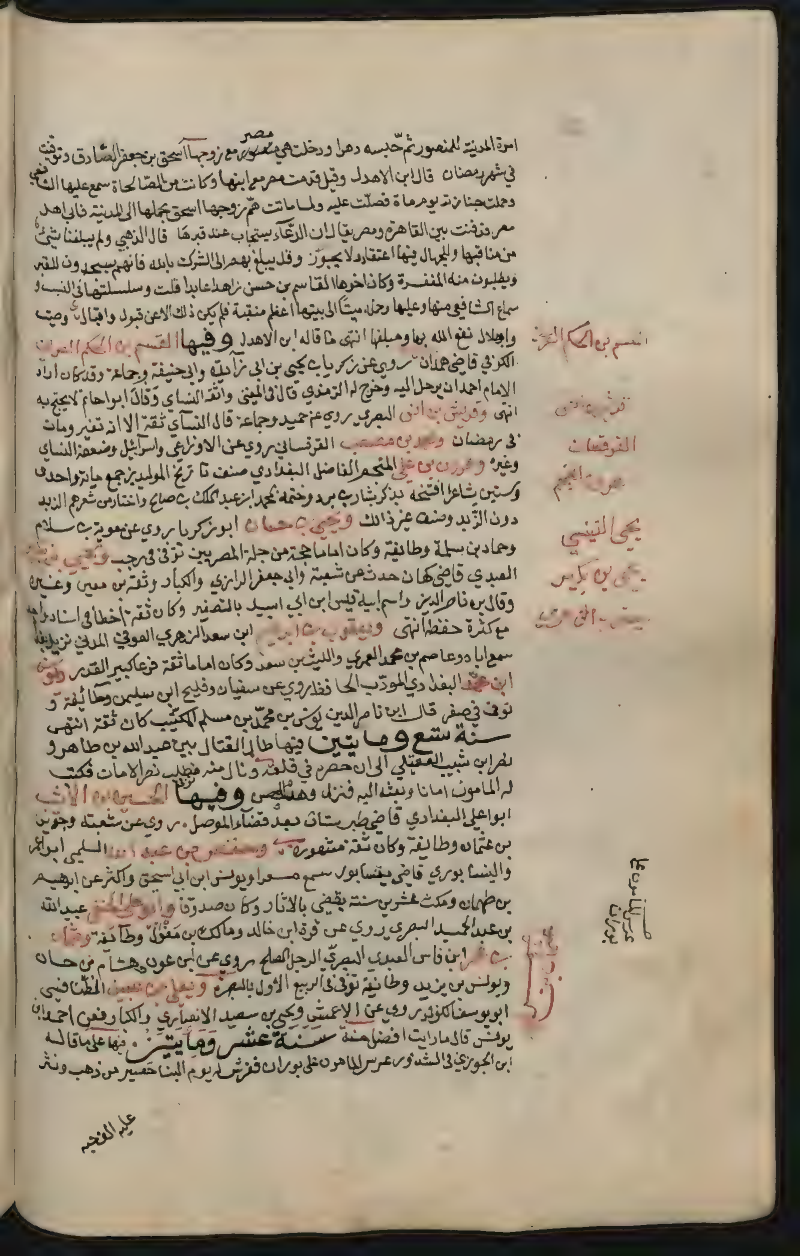 امرة المدنية للمنصور ثم حبسه دهرا ودخلت هي مصر مع زوجها اسحق بن جعفر الصادق وتوفيت
في شهر رمضان قال ابن الاهدل وقيل قدمت مصر مع ابنها وكانت من الصالحاة سمع عليها الشافعي
وحملت جنازته يوم ماة فصلت عليه ولما ماتت هم زوجها اسحق بحملها الى المدينة فابى اهل
مصر فدفنت بين القاهرة ومصر يقال ان الدعاء يستجاب عند قبرها قال الذهبي ولم يبلغنا شئ
من مناقبها وللجهال فيها اعتقاد لا يجوز وقد يبلغ بهم الى الشرك بالله فانهم يسجدون للقبر
ويطلبون منه المغفرة وكان اخوها القاسم بن حسن زاهدا عابدا قلت وسلسلتها في النسب و
سماع الشافعي منها وعليها وحمله ميتا الى بيتها اعظم منقبة فلم يكن ذلك الا عن قبول واقبال وصيت
واجلال نفع الله بها وبسلفها انتهى ما قاله ابن الاهدل وفيها القسم بن الحكم العرني
الكوفي قاضي همدان روى عن زكريا بن يحيى بن ابي زائدة وابي حنيفة وجماعة وقد كان اراد
الامام احمد ان يرحل اليه وخرج له الترمذي قال في المغني وثقه النساي وقال ابو حاتم لا يحتج به
انتهى وقريش بن انس البصري روى عن حميد وجماعة قال النساي ثقة الا انه تغير ومات
في رمضان ومحمد بن مصعب القرقساني روى عن الاوزاعي واسرائيل وضعفه النساي
وغيره وهرون بن علي المنجم الفاضل البغدادي صنف تاريخ المولدين جمع مائة واحدى
وستين شاعرا افتتحه بذكر بشار بن برد وختمه بمحمد ابن عبد الملك بن صالح واختار من شعرهم الزبد
دون الزبد وصنف غير ذالك ويحيى بن حسان ابو زكريا روى عن معوية بن سلام
وحماد بن سلمة وطائفة وكان اماما حجة من جلة المصريين توفي في رجب ويحيى بن
العبدي قاضي كرمان حدث عن شعبة وابي جعفر الرازي والكبار وثقه بن معين وغيره
وقال بن ناصر الدين واسم ابيه قيس ابن ابي اسيد بالتصغير وكان ثقة اخطأ في اسناد واحد
مع كثرة حفظه انتهى ويعقوب بن ابراهيم ابن سعد الزهري العوفي المدني نزيل
سمع اباه وعاصم بن محمد العمري والليث بن سعد وكان اماما ثقة ورعا كبير القدر ويونس
ابن محمد البغدادي المؤدب الحافظ روى عن سفيان وفليح ابن سليمن وطائفة و
توفي في صفر قال ابن ناصر الدين يونس بن محمد بن مسلم كان ثقة انتهى
سنة تسع ومايتين فيها طال القتال بين عبد الله بن طاهر و
نصر ابن شبيب العقيلي الى ان حصره في قلعة ونال منه فطلب نصر الامان فكتب
له المامون امانا وبعثه اليه فنزل وفيها الحسن بن الاشيب
ابو علي البغدادي قاضي طبرستان بعد قضاء الموصل روى عن شعبة وحريز
بن عثمان وطائفة وكان ثقة مشهورة وحفص بن عبد الله السلمي ابو عمر
والنيسابوري قاضي نيسابور سمع مسعرا ويونس ابن ابي اسحق واكثر عن ابراهيم
بن طهمان ومكث عشرين سنة يقضي بالاثار وكان صدوقا وابو علي الحنفي عبيد الله
بن عبد الحميد البصري روى عن قرة ابن خالد ومالك بن مغول وطائفة وعثمان
بن عمر ابن فارس العبدي البصري الرجل الصالح روى عن ابن عون وهشام بن حسان
ويونس بن يزيد وطائفة توفي في الربيع الاول بالبصرة ويعلى بن عبيد الطنافسي
ابو يوسف الكوفي روى عن الاعمش ويحيى بن سعيد الانصاري والكبار فعن احمد ابن
يونس قال ما رايت افضل منه سنة عشر ومايتين فيها على ما قاله
ابن الجوزي في الشذور عرس المامون على بوران ففرش له يوم البنا حصير من ذهب ونثر
عليه
القسم بن الحكم العرني
قريش بن انس
القرقساني
هرون المنجم
يحيى التنيسي
يحيى بن بكير
عرس المامون على
بوران